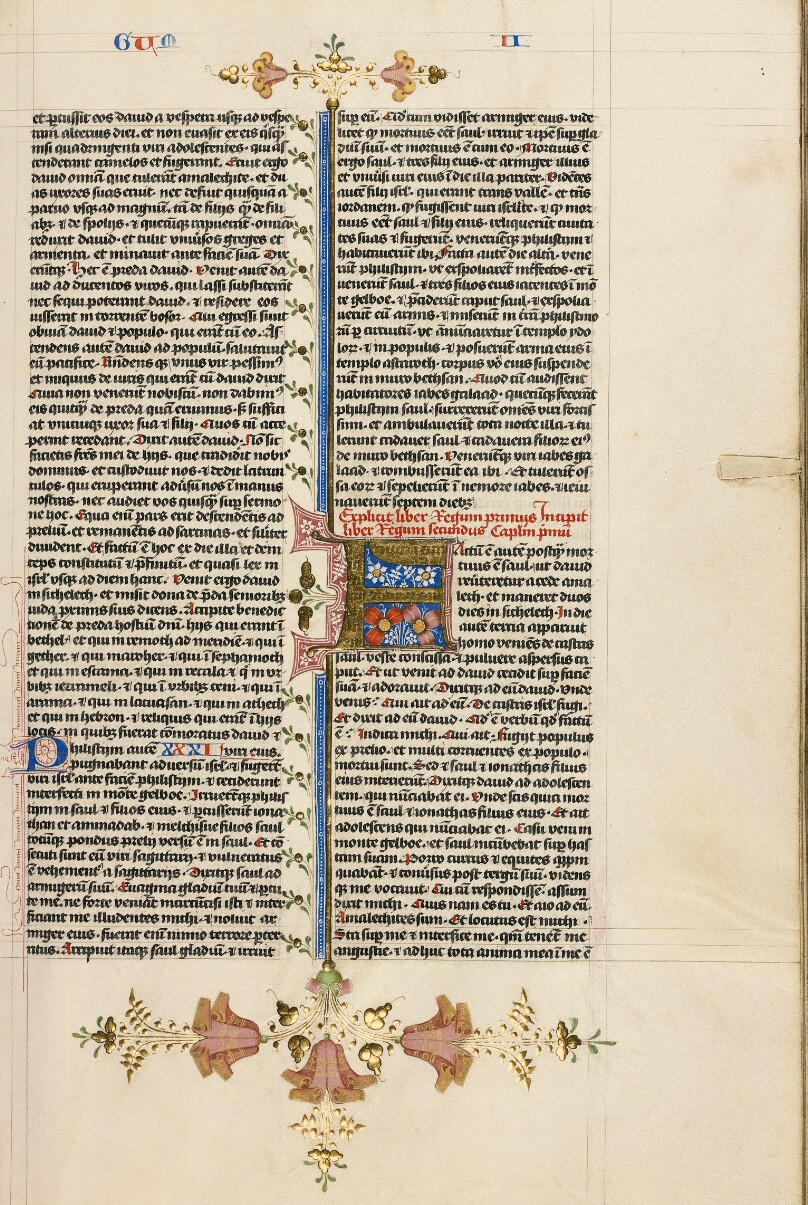 GUM II
et ꝑcussit eos dauid a vespera usq; ad vespe
ram alterius diei. et non euasit ex eis qͥsqͣ
nisi quadringenti viri adolescentes. qui as
cenderant camelos et fugerant. Eruit ergo
dauid omnia que tulerāt amalechite. et du
as uxores suas eruit. nec defuit quisquā a
paruo vsq; ad magnū. tā de filijs qͣ de fili
abꝫ. ⁊ de spolijs. ⁊ quecūq; rapuerāt. omīa
reduxit dauid. et tulit vniūsos greges et
armenta. et minauit ante faciē suā. Dix
erūtq;. Hec ē preda dauid. Venit autē da
uid ad ducentos viros. qui lassi substiterāt
nec sequi poterant dauid. ⁊ residere eos
iusserat in torrente besor. Qui egressi sunt
obuiā dauid ⁊ populo. qui erāt cū eo. Ac
cedens autē dauid ad populū. salutauit
eū pacifice. Rñdens q; vnus vir pessimꝰ
et iniquus de viris qui erāt cū dauid dixit
Quia non venerūt nobiscū. non dabimꝰ
eis quicqͣ de preda quā eruimus. sꝫ suffici
at vnicuiq; uxor sua ⁊ filij. Quos cū acce
perint recedant. Dixit autē dauid. Nō sic
facietis frēs mei de hijs. que tradidit nobꝭ
dominus. et custodiuit nos. ⁊ dedit latrun
culos. qui eruperant adūsū nos ī manus
nostras. nec audiet vos quisqͣ sup sermo
ne hoc. Equa enī pars erit descendētis ad
preliū. et remanētis ad sarcinas. et siliter
diuident. Et factū ē hoc ex die illa et dein
ceps constitutū ⁊ ꝓfinitū. et quasi lex in
isrl' vsq; ad diem hanc. Venit ergo dauid
in sichelech. et misit dona de p̄da seniorib;
iuda proximis suis dicens. Accipite benedic
tionē de preda hostiū dnī. hijs qui erant ī
bethel. et qui in remoth ad meridiē. ⁊ qui ī
gether. ⁊ qui ī aroher. ⁊ qui ī sephamoth
et qui in estama. ⁊ qui in recala. et qͥ in vr
bibꝫ ieranmeli. ⁊ qui ī vrbibꝫ ceni. ⁊ qui ī
arama. ⁊ qui in lacuasan. ⁊ qui in athech
et qui in hebron. ⁊ reliquis qui erāt ī hijs
locis. in quibꝫ fuerat cōmoratus dauid ⁊
Philistim autē XXXI viri eius.
pugnabant aduersū isrl'. ⁊ fugerūt
viri isrl' ante faciē philistijm. ⁊ ceciderunt
interfecti in mōte gelboe. Irruerūtq; philis
tijm in saul ⁊ filios eius. ⁊ ꝑcusserūt iona
than et aminadab. ⁊ melchisue filios saul
totūq; pondus prelij versū ē in saul. Et cō
secuti sunt eū viri sagittarij. ⁊ vulneratus
ē vehement' a sagittarijs. Dixitq; saul ad
armigerū suū. Euagina gladiū tuū ⁊ ꝑcu
te me. ne forte veniāt incircūcisi isti ⁊ inter
ficiant me illudentes michi. ⁊ noluit ar
miger eius. fuerat enī nimio terrore ꝑter
ritus. Arripuit itaq; saul gladiū. ⁊ irruit
sup eū. Qd' cum vidisset armiger eius. vide
licet qͥ mortuus eēt saul. irruit ⁊ ip̄e sup gla
diū suū. et mortuus ē cum eo. Mortuus ē
ergo saul. ⁊ tres filij eius. et armiger illius
et vniūsi viri eius ī die illa pariter. Vidētes
autē filij isrl'. qui erant trans vallē. et trās
iordanem. qͥ fugissent viri isrl'ite. ⁊ qͥ mor
tuus eēt saul ⁊ filij eius. reliquerūt ciuita
tes suas ⁊ fugerūt. venerūtq; philistijm ⁊
habitauerūt ibi. Facta autē die altīa. vene
rūt philistijm. vt exspoliarēt int'fectos. et ī
uenerūt saul. ⁊ tres filios eius iacentes ī mō
te gelboe. ⁊ p̄ciderūt caput saul. ⁊ exspolia
uerūt eū armis. ⁊ miserūt in t'rā philistino
rū ꝑ circuitū. vt anūciaretur ī templo ydo
lorꝫ. ⁊ in populis. ⁊ posuerūt arma eius ī
templo astaroth. corpus v̄o eius suspende
rūt in muro bethsan. Quod cū audissent
habitatores iabes galaad. quecūq; fecerāt
philistijm saul. surrexerūt omēs viri fortis
simi. et ambulauerūt tota nocte illa. ⁊ tu
lerunt cadauer saul ⁊ cadauera filiorꝫ eiꝰ
de muro bethsan. Venerūtq; viri iabes ga
laad. ⁊ combusserūt ea ibi. Et tulerūt os
sa eorꝫ ⁊ sepelierūt ī nemore iabes. ⁊ ieiu
nauerūt septem diebꝫ
Explicit liber Regum primus. Incipit
liber Regum secundus. Caplm p̄mū
Factū ē autē postqͣ mor
tuus ē saul. ut dauid
reūteretur a cede ama
lech. et maneret duos
dies in sichelech. In die
autē tercia apparuit
homo veniēs de castris
saul. veste conscissa ⁊ puluere aspersus ca
put. Et ut venit ad dauid cecidit sup faciē
suā. ⁊ adorauit. Dixitq; ad eū dauid. Vnde
venis? Qui ait ad eū. De castris isrl' fugi.
Et dixit ad eū dauid. Qd' ē verbū qd' factū
ē? Indica michi. Qui ait. Fugit populus
ex prelio. et multi corruentes ex populo.
mortui sunt. Sed ⁊ saul ⁊ ionathas filius
eius interierūt. Dixitq; dauid ad adolescen
tem. qui nūciabat ei. Vnde scis quia mor
tuus ē saul ⁊ ionathas filius eius. Et ait
adolescens qui nūciabat ei. Casu veni in
monte gelboe. et saul incūbebat sup has
tam suam. Porro currus ⁊ equites appin
quabāt. ⁊ cōuīsus post tergū suū. videns
q; me vocauit. Cui cū respondissē assum
dixit michi. Quis nam es tu. Et aio ad eū.
Amalechites sum. Et locutus est michi.
Sta sup me ⁊ interfice me. qm̄ tenēt me
angustie. ⁊ adhuc tota anima mea ī me ē